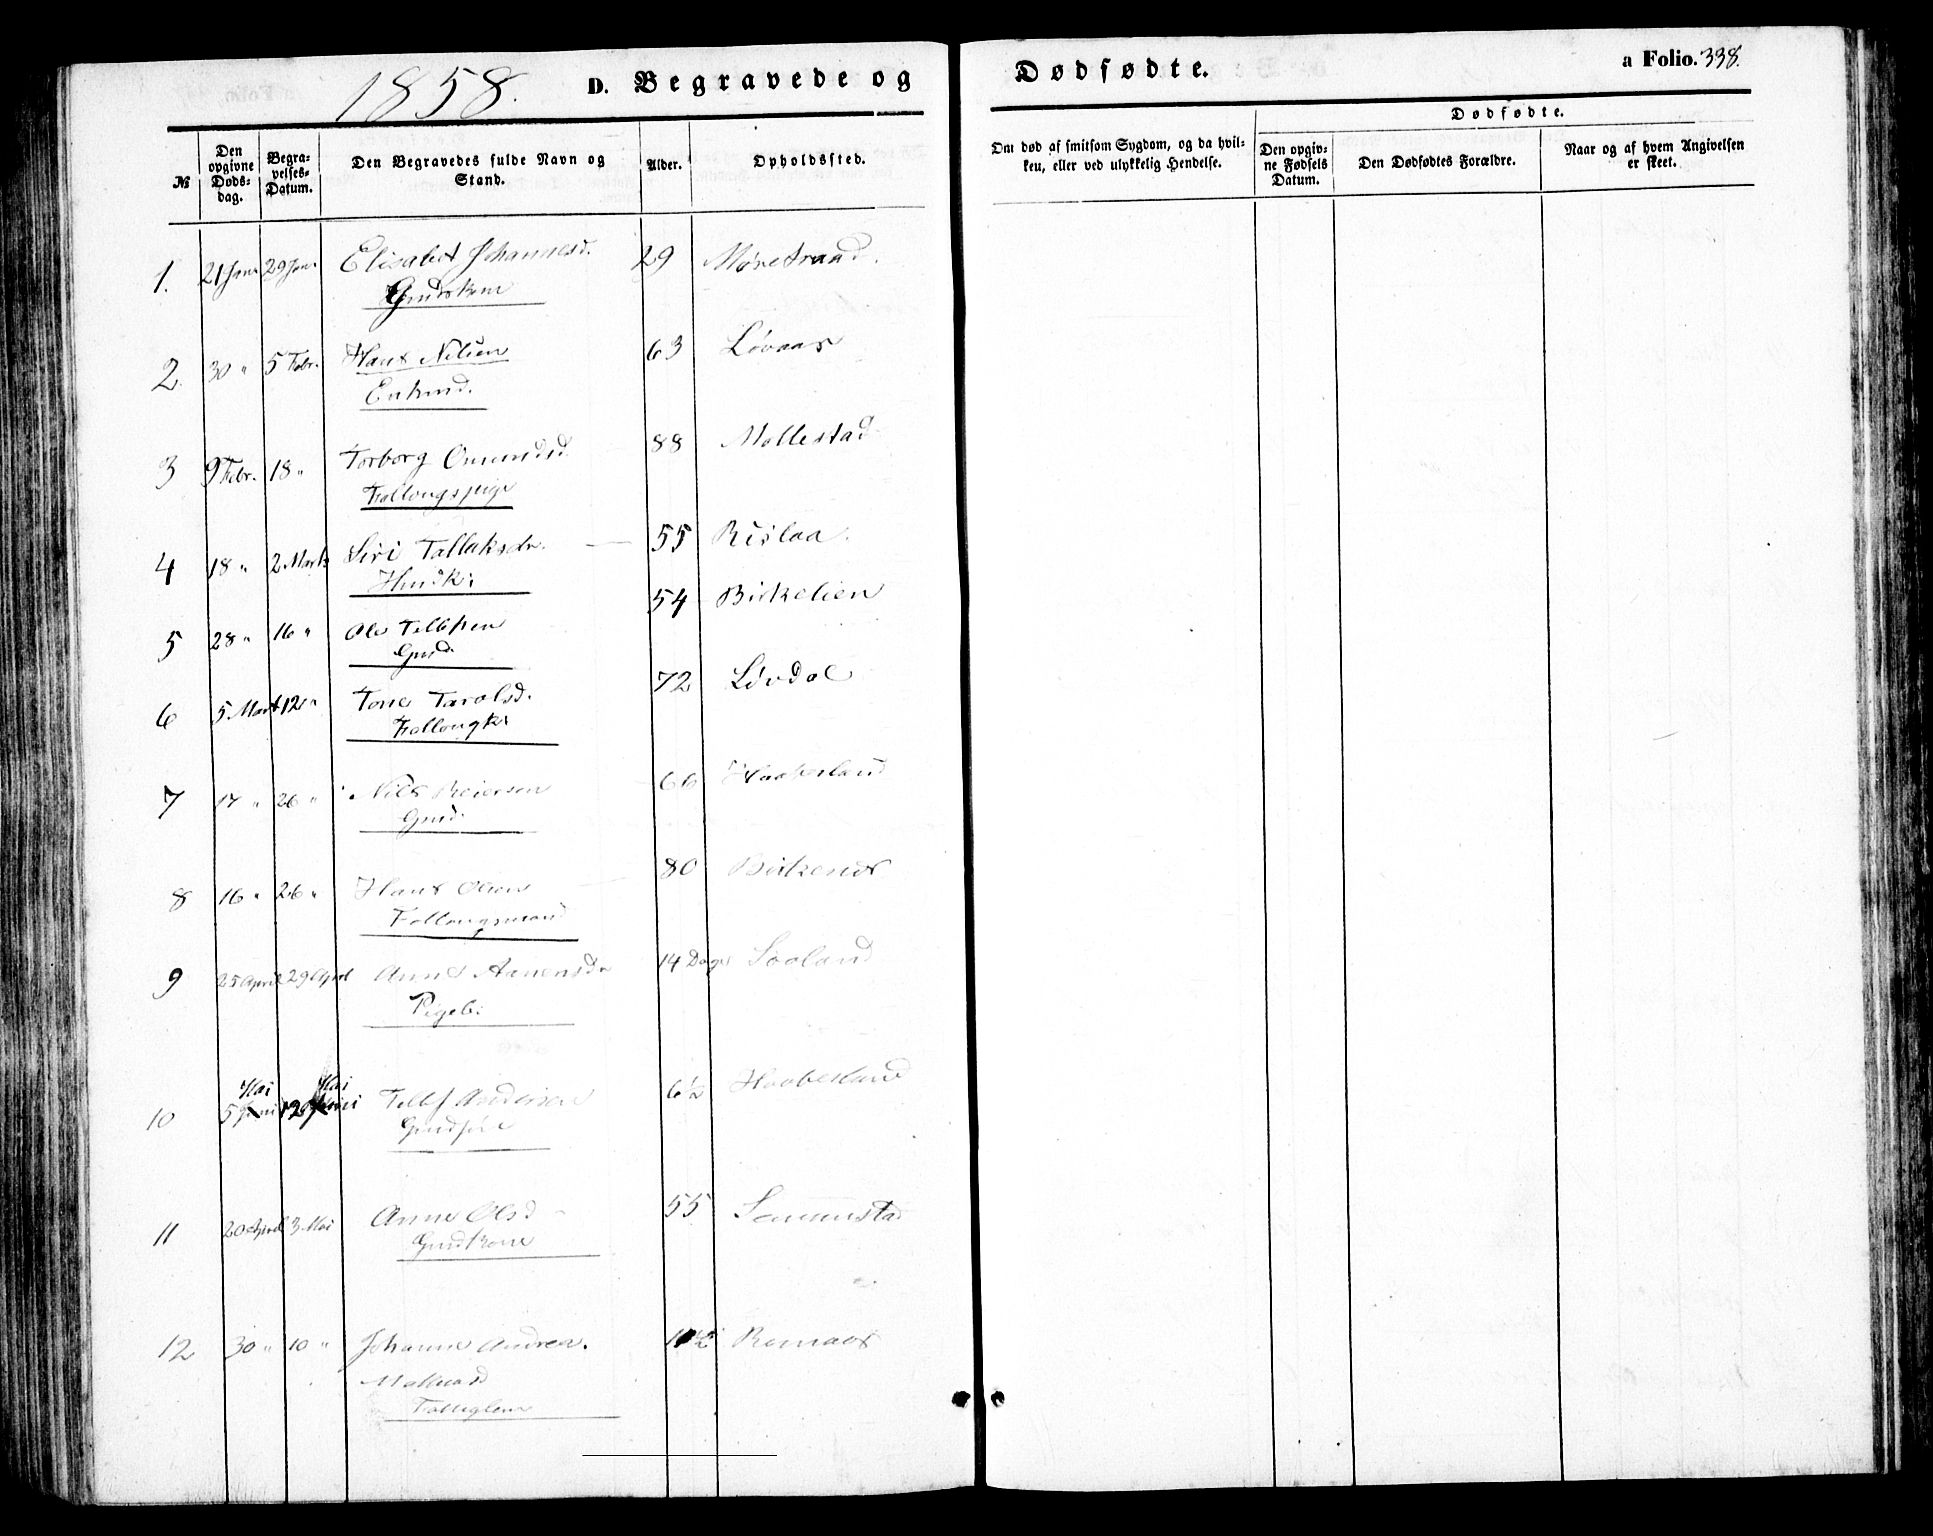 1858. D. Begravede og Dødfødte. a Folio. 338.
№ Den opgivne Døds-dag. Begra-velses-Datum. Den Begravedes fulde Navn og Stand. Alder. Opholdssted. Om død af smitsom Sygdom, og da hvil-ken, eller ved ulykkelig Hendelse. Dødfødte. Den opgiv-ne Fødsels Datum. Den Dødfødtes Forældre. Naar og af hvem Angivelsen er skeet.
1. 21 Janr 29 Janr Elisabet Johannesd. 29
Gmdskone
2. 30 " 5 Febr. Hans Nilsen 63 Løvaas
Enkmd.
3 9 Febr. 18 " Torborg Omundsd. 88 Mollestad
Follougspige
4 18 " 2 Marts Siri Tallaksdr. 55 Rislaa.
Husk:
5 28 " 16 " Ole Tellefsen 54 Birkelien
Gmd.
6 5 Mart 12 " Tone Tarolsd. 72 Løvdal
Follougk:
7 17 " 26 " Nils Reiersen 66 Haabesland
Gmd.
8 16 " 26 " Hans Olsen 80 Birkenes
Follougsmand
9 25 April 29 April Anne Aanensdr 14 Dage
Pigeb:
Mai Mai
10 5 Juni 12 Juni Tellef Andersen 6½ Haabesland
Gmdssøn
11 20 April 3 Mai Anne Olsd 55
Gmdkone
12 30 " 10 " Johanne Andrea.